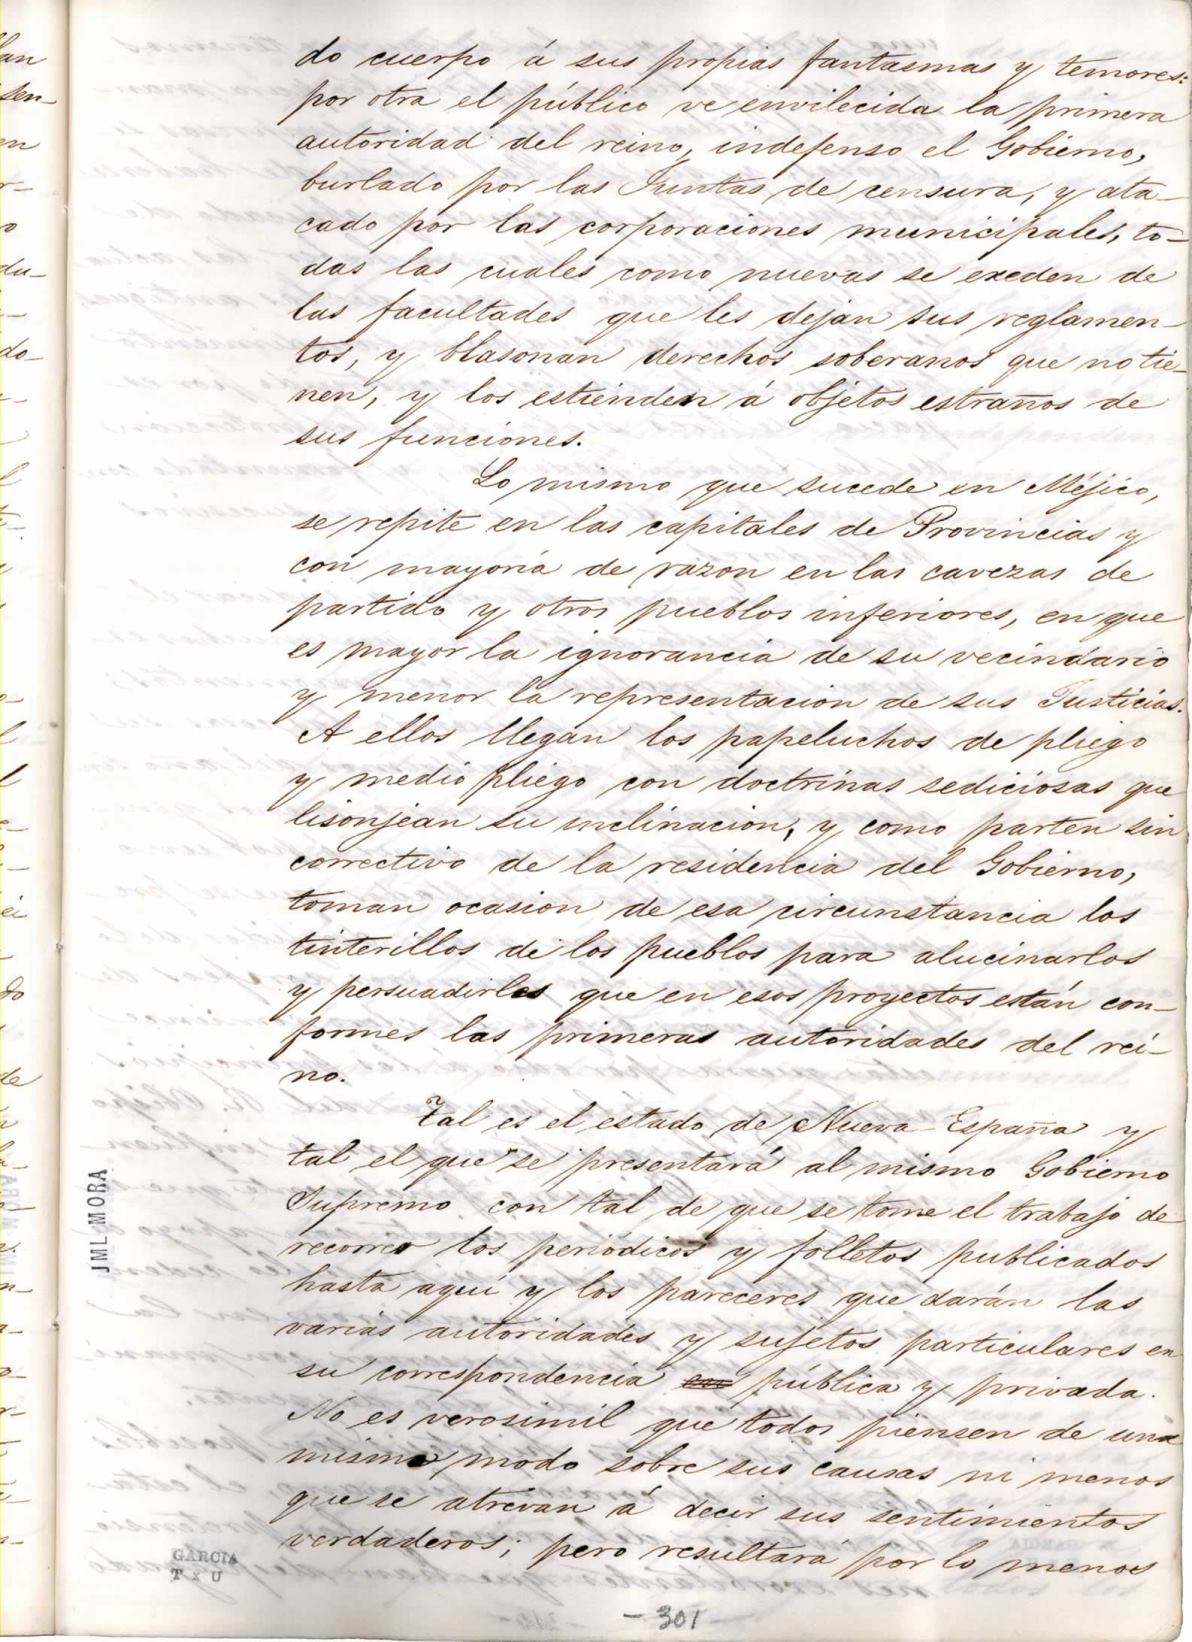 do cuerpo á sus propias fantasmas y temores:
por otra el público ve envilecida la primera
autoridad del reino, indefenso el Gobierno,
burlado por las Juntas de censura, y ata-
cado por las corporaciones municipales, to-
das las cuales como nuevas se exeden de
las facultades que les dejan sus reglamen-
tos, y blasonan derechos soberanos que no tie-
nen, y los estienden á objetos estraños de
sus funciones.
Lo mismo que sucede en Méjico,
se repite en las capitales de Provincias y
con mayoría de razon en las cavezas de
partido y otros pueblos inferiores, en que
es mayor la ignorancia de su vecindario
y menor la representacion de sus Justicias.
A ellos llegan los papeluchos de pliego
y medio pliego con doctrinas sediciosas que
lisonjean su inclinacion, y como parten sin
correctivo de la residencia del Gobierno,
toman ocasion de esa circunstancia los
tinterillos de los pueblos para alucinarlos
y persuadirles que en esos proyectos están con-
formes las primeras autoridades del rei-
no.
Tal es el estado de Nueva España y
tal el que se presentará al mismo Gobierno
Supremo con tal de que se tome el trabajo de
recorrer los periódicos y folletos publicados
hasta aquí y los pareceres que darán las
varias autoridades y sujetos particulares en
su correspondencia pública y privada.
No es verosimil que todos piensen de una
mismo modo sobre sus causas ni menos
que se atrevan á decir sus sentimientos
verdaderos; pero resultará por lo menos
JML MORA
GARCIA
- 301 -